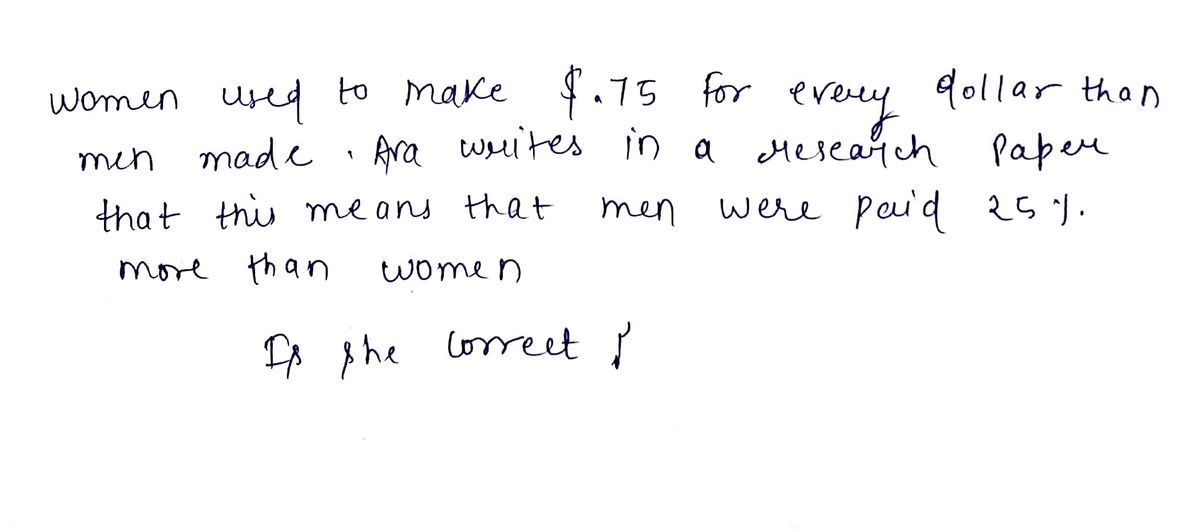 women used to make $.75 for every dollar than
men made. Ara writes in a research paper
that this means that men were paid 25%.
more than women
Is she correct ?